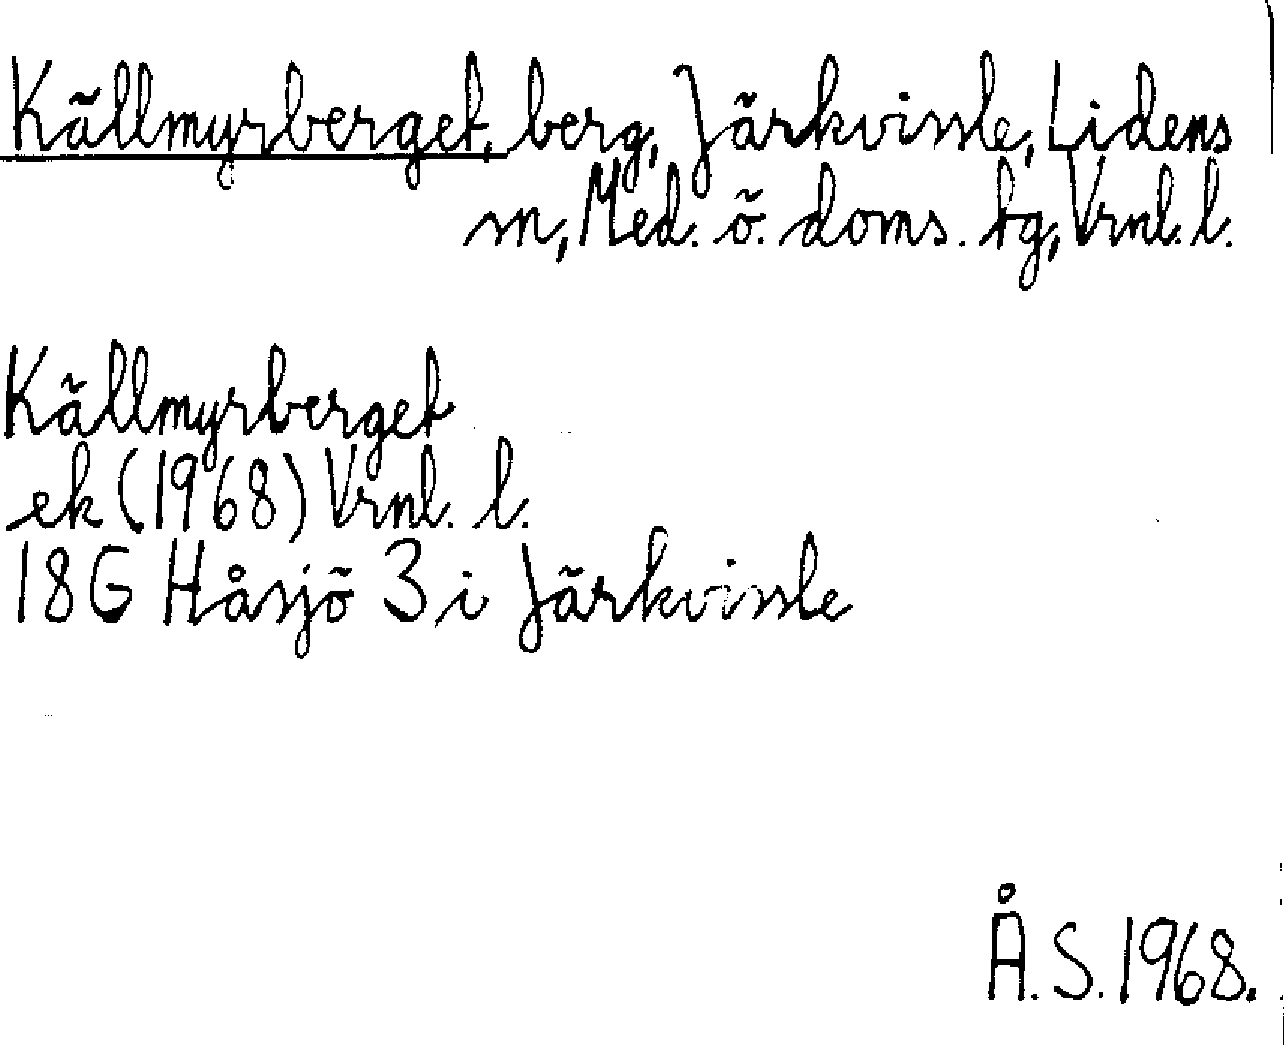 Källmyrberget, berg, Järkvissle, Lidens
sn, Med. ö. doms. tg, Vrnl. l.
Källmyrberget
ek (1968) Vrnl. l.
18G Håsjö 3 i Järkvissle
Å.S. 1968.